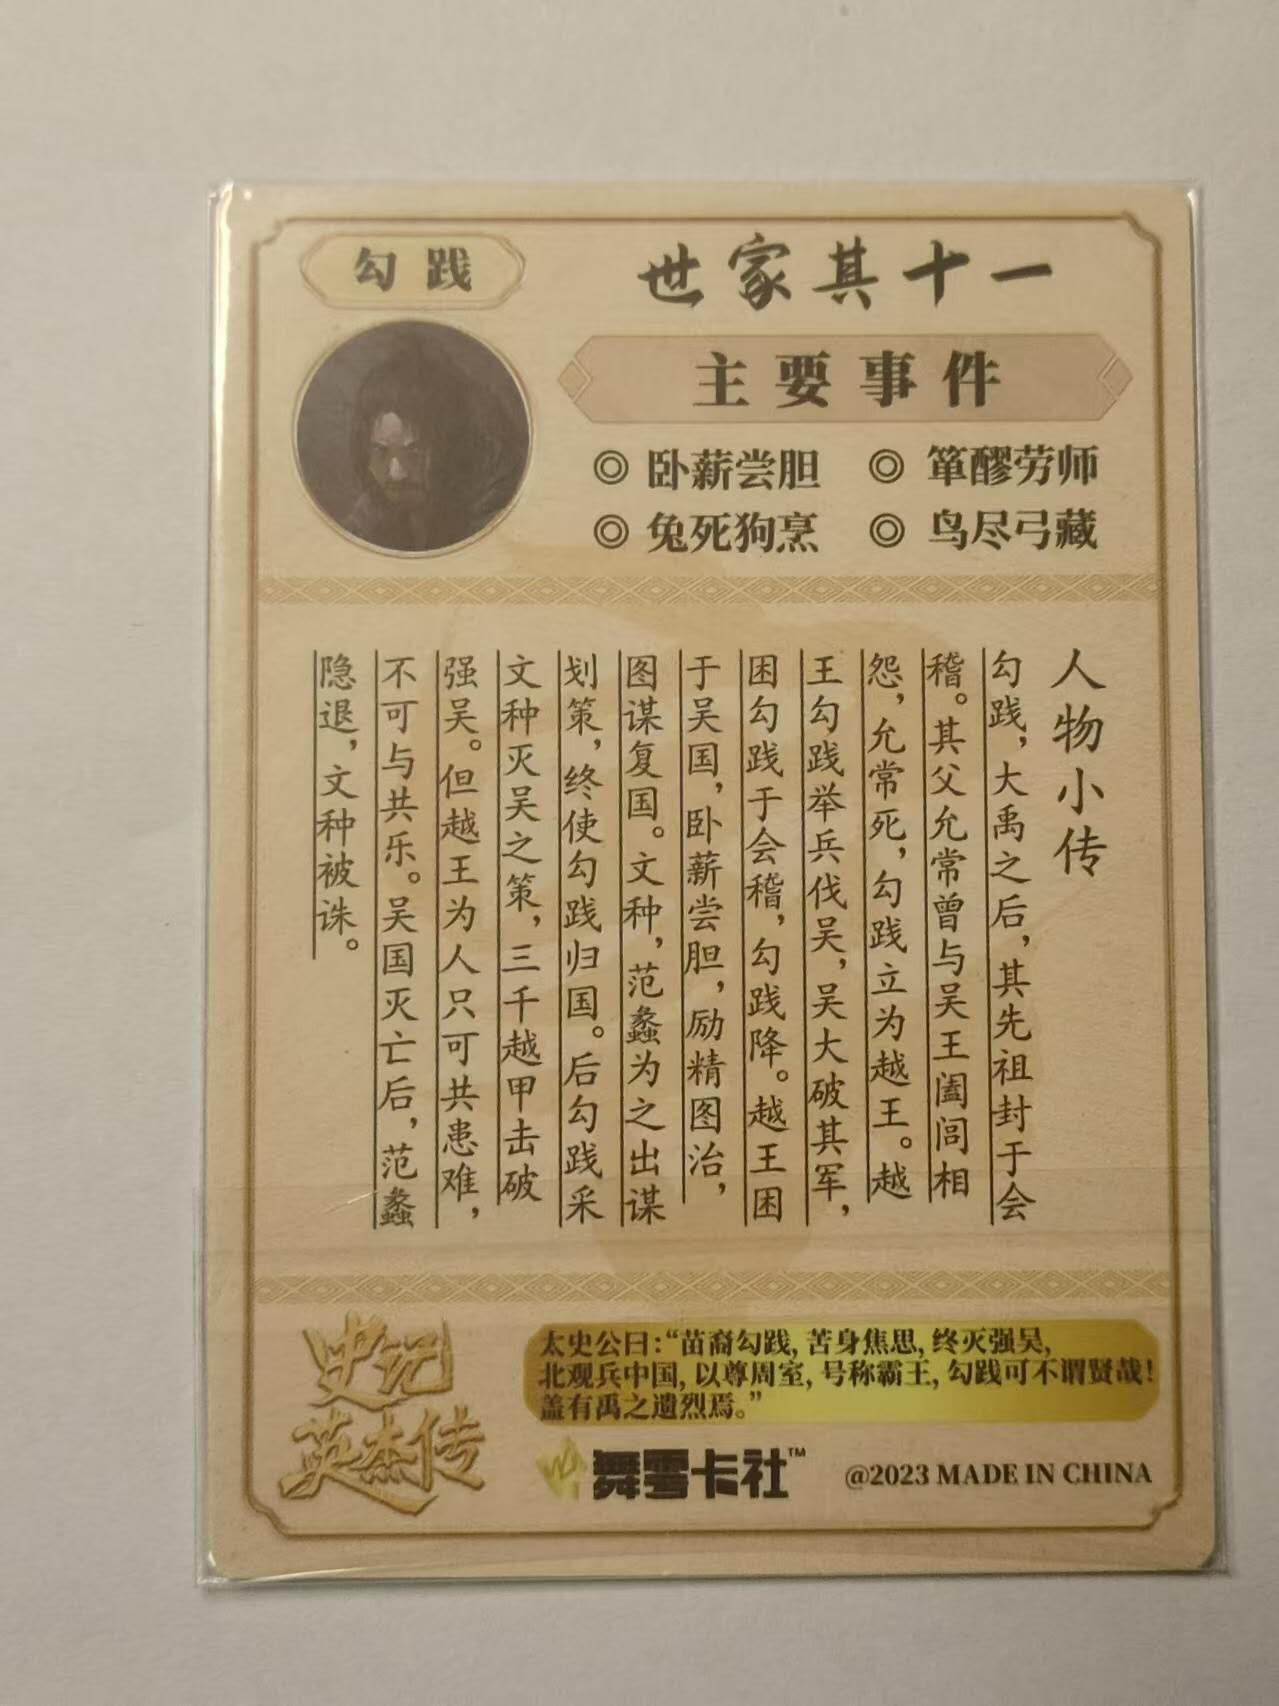 勾践
世家其十一
主要事件
◎ 卧薪尝胆 ◎ 箪醪劳师
◎ 兔死狗烹 ◎ 鸟尽弓藏
人物小传
勾践，大禹之后，其先祖封于会
稽。其父允常曾与吴王阖闾相
怨，允常死，勾践立为越王。越
王勾践举兵伐吴，吴大破其军，
困勾践于会稽，勾践降。越王困
于吴国，卧薪尝胆，励精图治，
图谋复国。文种，范蠡为之出谋
划策，终使勾践归国。后勾践采
文种灭吴之策，三千越甲击破
强吴。但越王为人只可共患难，
不可与共乐。吴国灭亡后，范蠡
隐退，文种被诛。
史记
英杰传
太史公曰：“苗裔勾践，苦身焦思，终灭强吴，
北观兵中国，以尊周室，号称霸王，勾践可不谓贤哉！
盖有禹之遗烈焉。”
舞雩卡社™
@2023 MADE IN CHINA